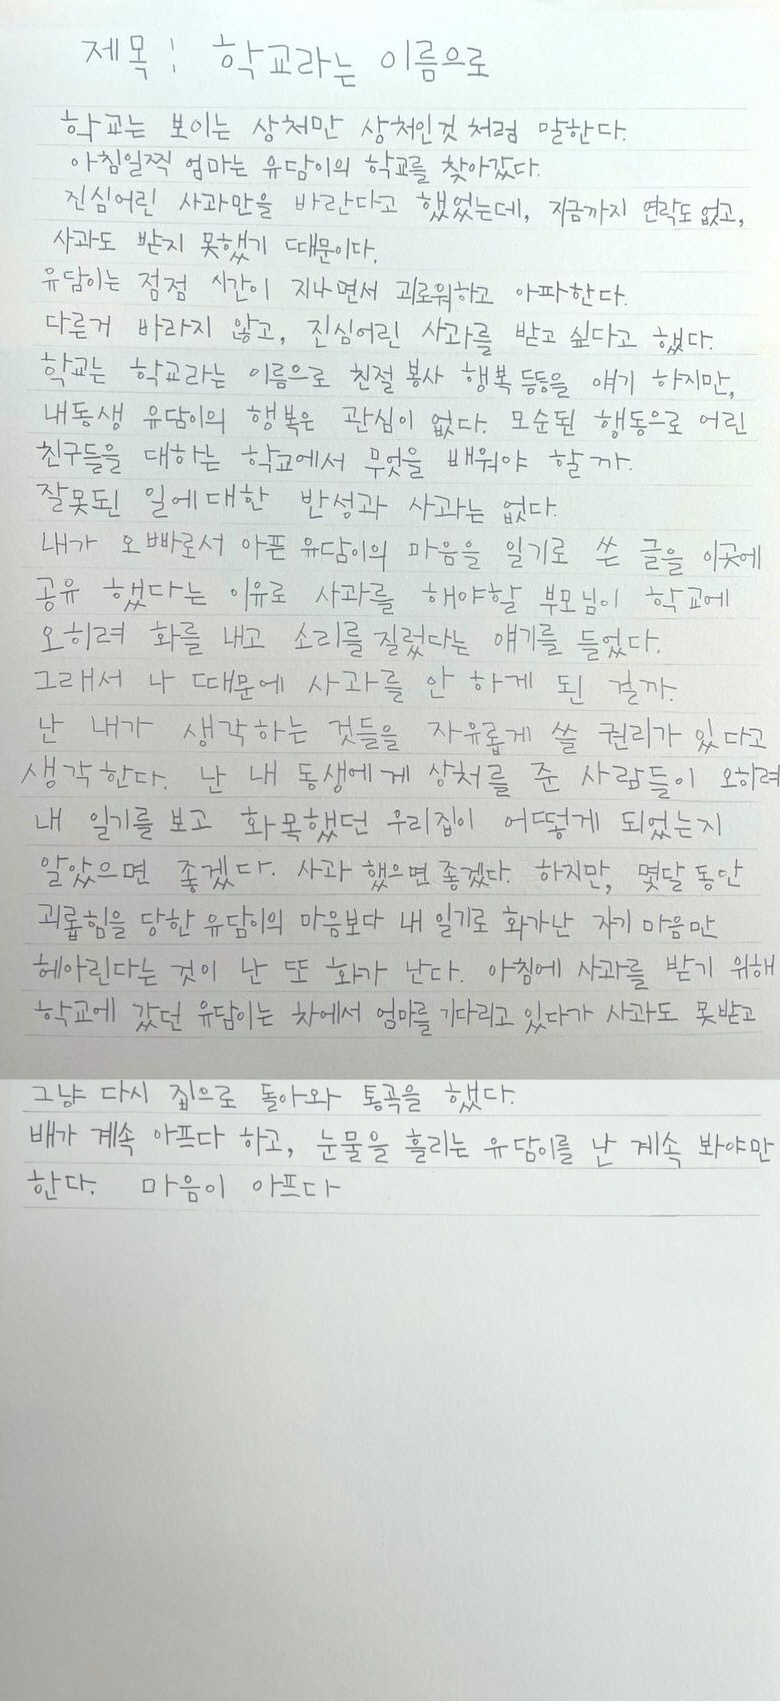 제목: 학교라는 이름으로
학교는 보이는 상처만 상처인것 처럼 말한다.
아침일찍 엄마는 유담이의 학교를 찾아갔다.
진심어린 사과만을 바란다고 했었는데, 지금까지 연락도 없고,
사과도 받지 못했기 때문이다.
유담이는 점점 시간이 지나면서 괴로워하고 아파한다.
다른거 바라지 않고, 진심어린 사과를 받고 싶다고 했다.
학교는 학교라는 이름으로 친절 봉사 행복 등등을 얘기 하지만,
내동생 유담이의 행복은 관심이 없다. 모순된 행동으로 어린
친구들을 대하는 학교에서 무엇을 배워야 할까.
잘못된 일에대한 반성과 사과는 없다.
내가 오빠로서 아픈 유담이의 마음을 일기로 쓴 글을 이곳에
공유 했다는 이유로 사과를 해야할 부모님이 학교에
오히려 화를 내고 소리를 질렀다는 얘기를 들었다.
그래서 나 때문에 사과를 안 하게 된 걸까.
난 내가 생각하는 것들을 자유롭게 쓸 권리가 있다고
생각한다. 난 내 동생에게 상처를 준 사람들이 오히려
내 일기를 보고 화목했던 우리집이 어떻게 되었는지
알았으면 좋겠다. 사과 했으면 좋겠다. 하지만, 몇달 동안
괴롭힘을 당한 유담이의 마음보다 내 일기로 화가난 자기 마음만
헤아린다는 것이 난 또 화가 난다. 아침에 사과를 받기 위해
학교에 갔던 유담이는 차에서 엄마를 기다리고 있다가 사과도 못받고
그냥 다시 집으로 돌아와 통곡을 했다.
배가 계속 아프다 하고, 눈물을 흘리는 유담이를 난 계속 봐야만
한다. 마음이 아프다